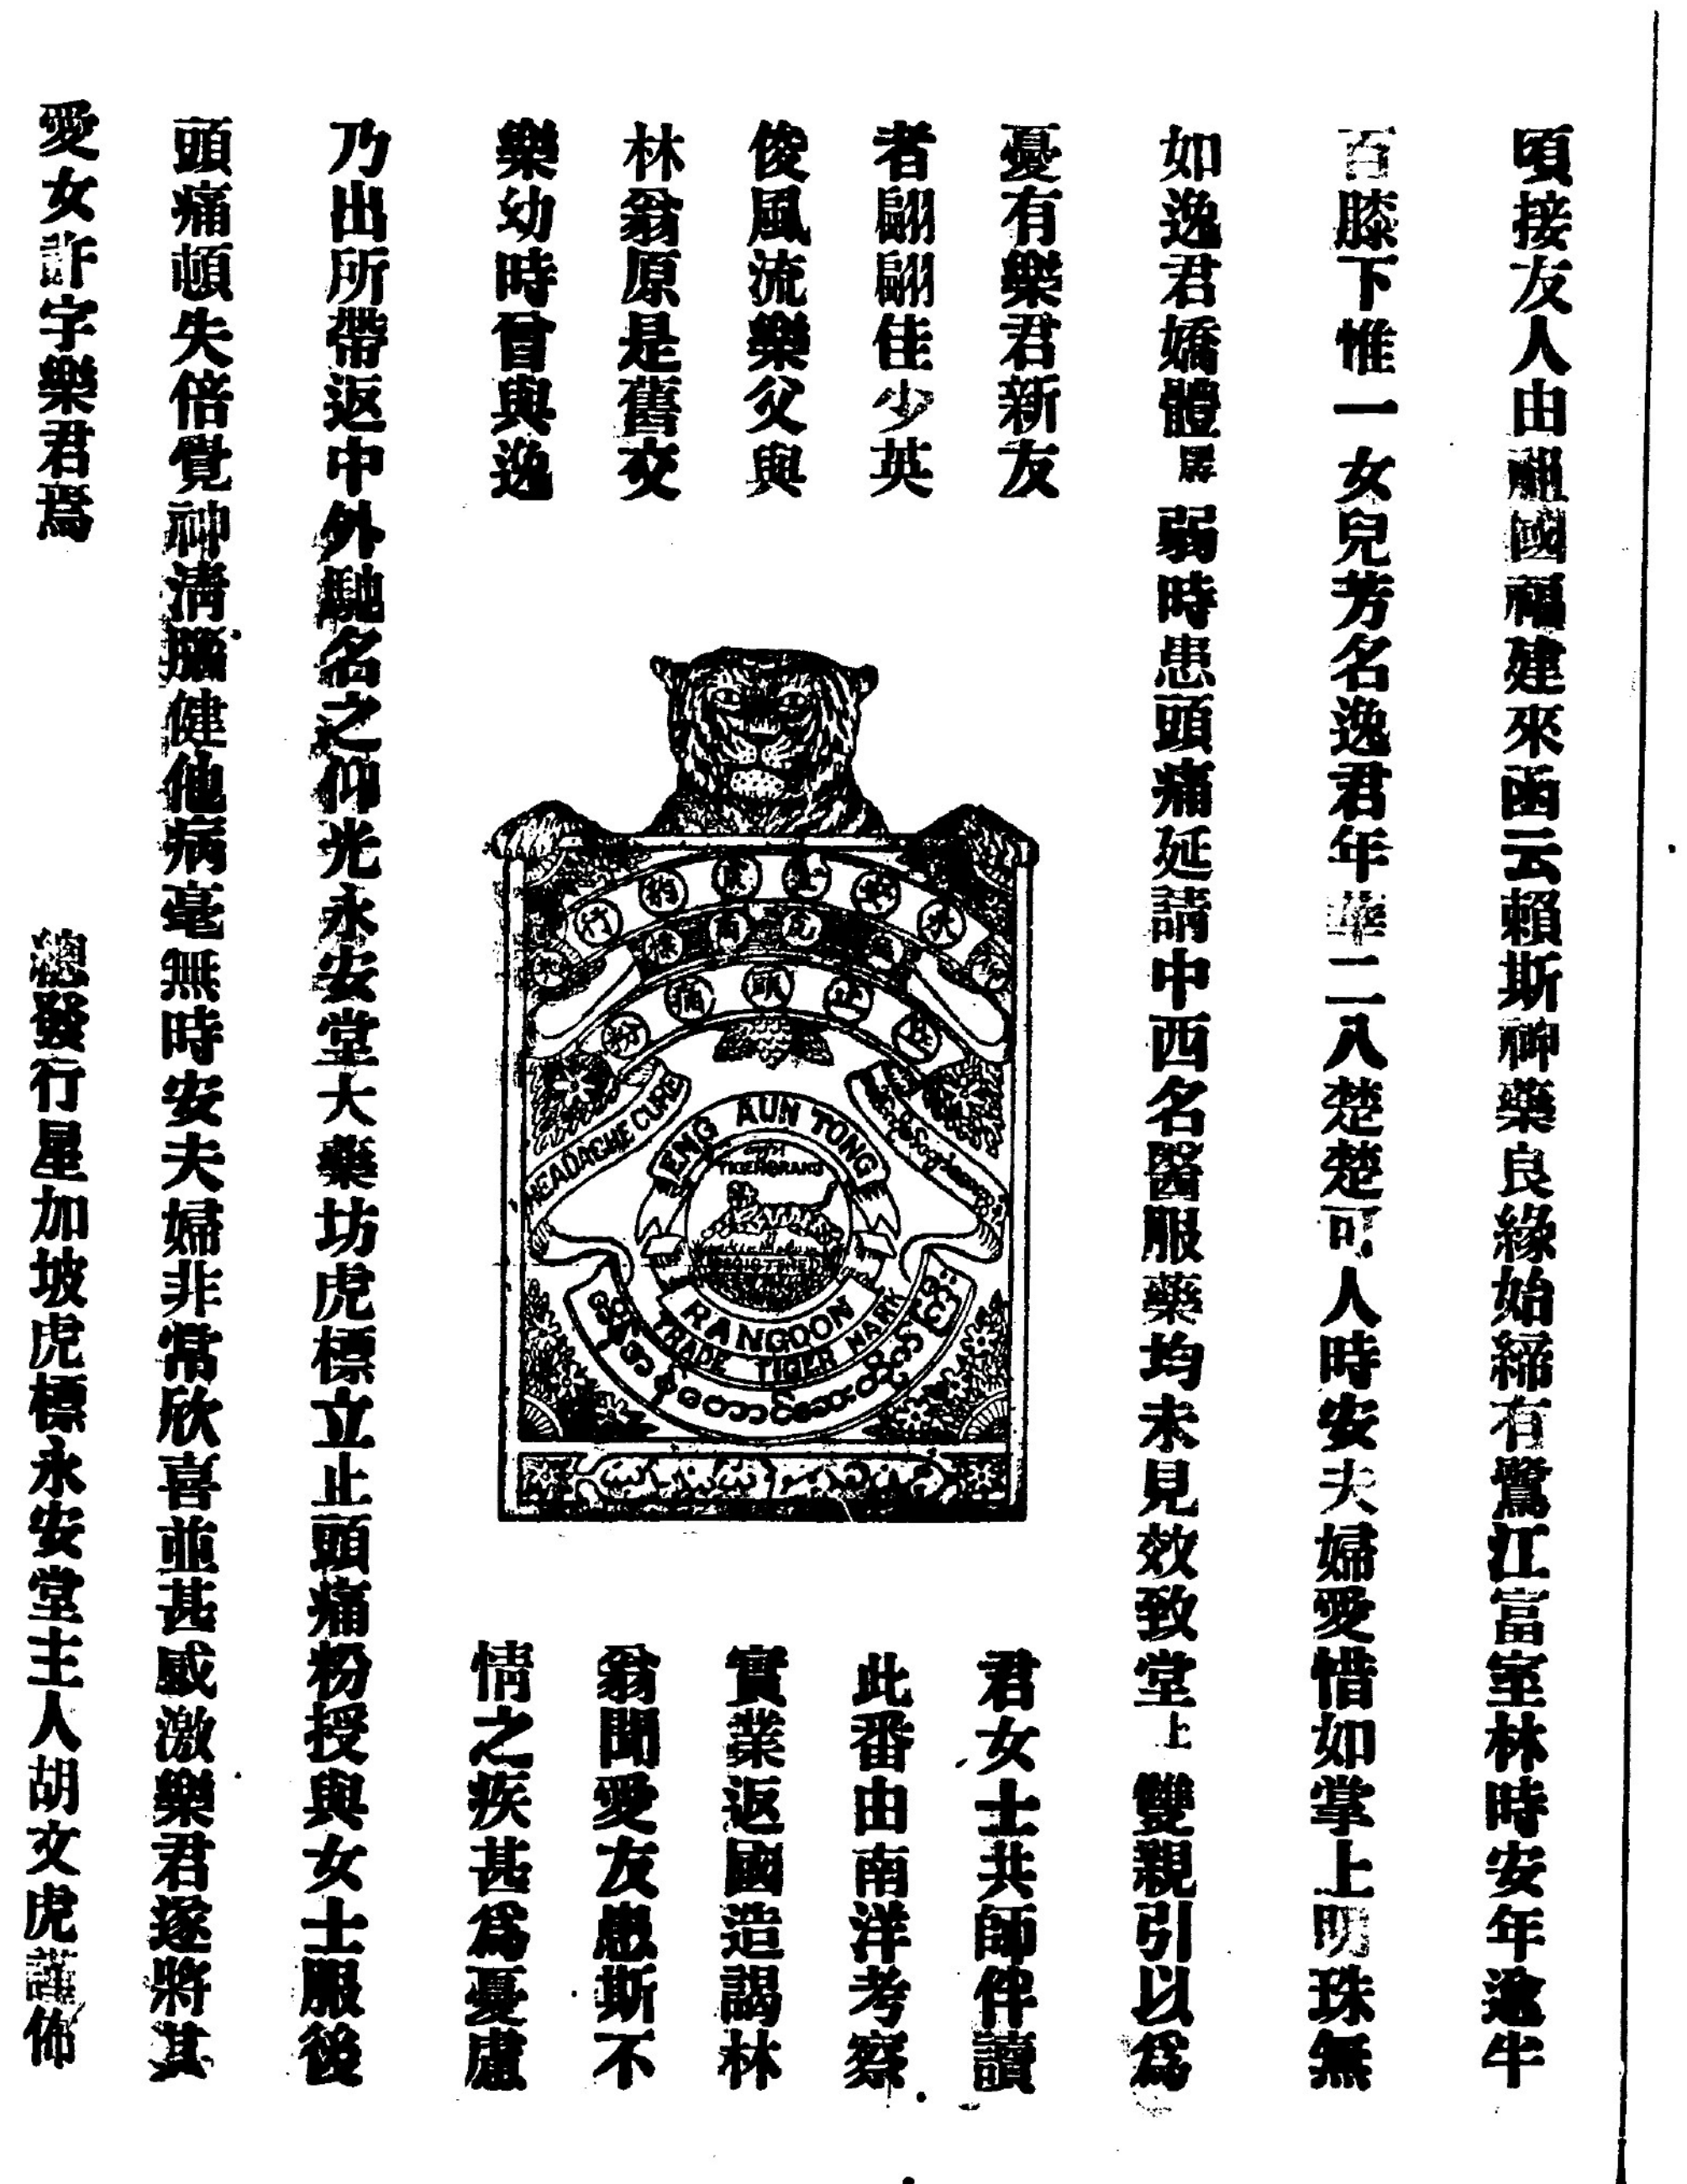 頃接友人由祖國福建來函云賴斯神藥良緣始締有鷺江富室林時安年逾半
百膝下惟一女兒芳名逸君年華二八楚楚可人時安夫婦愛惜如掌上明珠無
如逸君嬌體孱弱時患頭痛延請中西名醫服藥均未見效致堂上雙親引以爲
憂有樂君新友
者翩翩佳少英
俊風流樂父與
林翁原是舊交
樂幼時曾與逸
君女士共師伴讀
此番由南洋考察
實業返國造謁林
翁聞愛友患斯不
情之疾甚爲憂慮
乃出所帶返中外馳名之仰光永安堂大藥坊虎標立止頭痛粉授與女士服後
頭痛頓失倍覺神清腦健他病毫無時安夫婦非常欣喜並甚感激樂君遂將其
愛女許字樂君焉
總發行星加坡虎標永安堂主人胡文虎謹佈
永安堂虎豹行
止頭痛粉
HEADACHE CURE
ENG AUN TONG
TIGER BRAND
REGISTERED
RANGOON
TRADE TIGER MARK